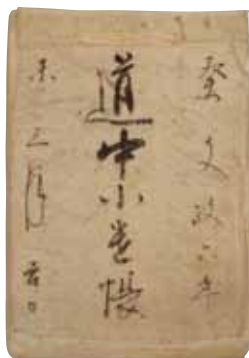 癸文政六年
道中小遣帳
未三月吉日